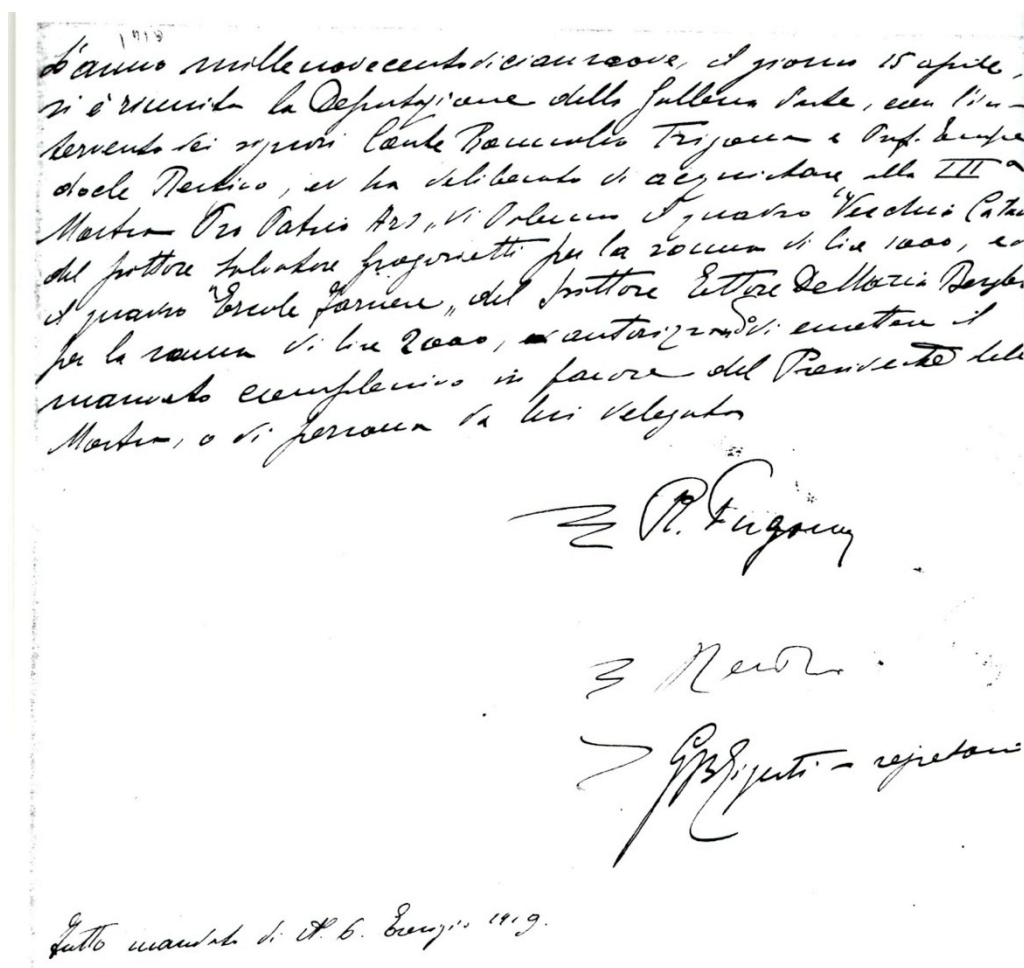 1918
L'anno millenovecentodiciannove, il giorno 15 aprile,
si è riunita la Deputazione della Galleria d'arte, con l'in-
tervento dei signori Conte Romualdo Trigona e Prof. Empe
docle Restivo, ed ha deliberato di acquistare alla IIIª
Mostra Pro Patria Ars„ di Palermo il quadro "Vecchio
del pittore Salvatore Gregorietti per la somma di lire 1000, ed
il quadro "Ercole Farnese„ del pittore Ettore De Maria Bergler
per la somma di lire 2000, autorizzando di emettere il
mandato complessivo in favore del Presidente della
Mostra, o di persona da lui delegata
R. Trigona
Restivo
segretario
Fatto mandato di N. 6. Esercizio 1919.